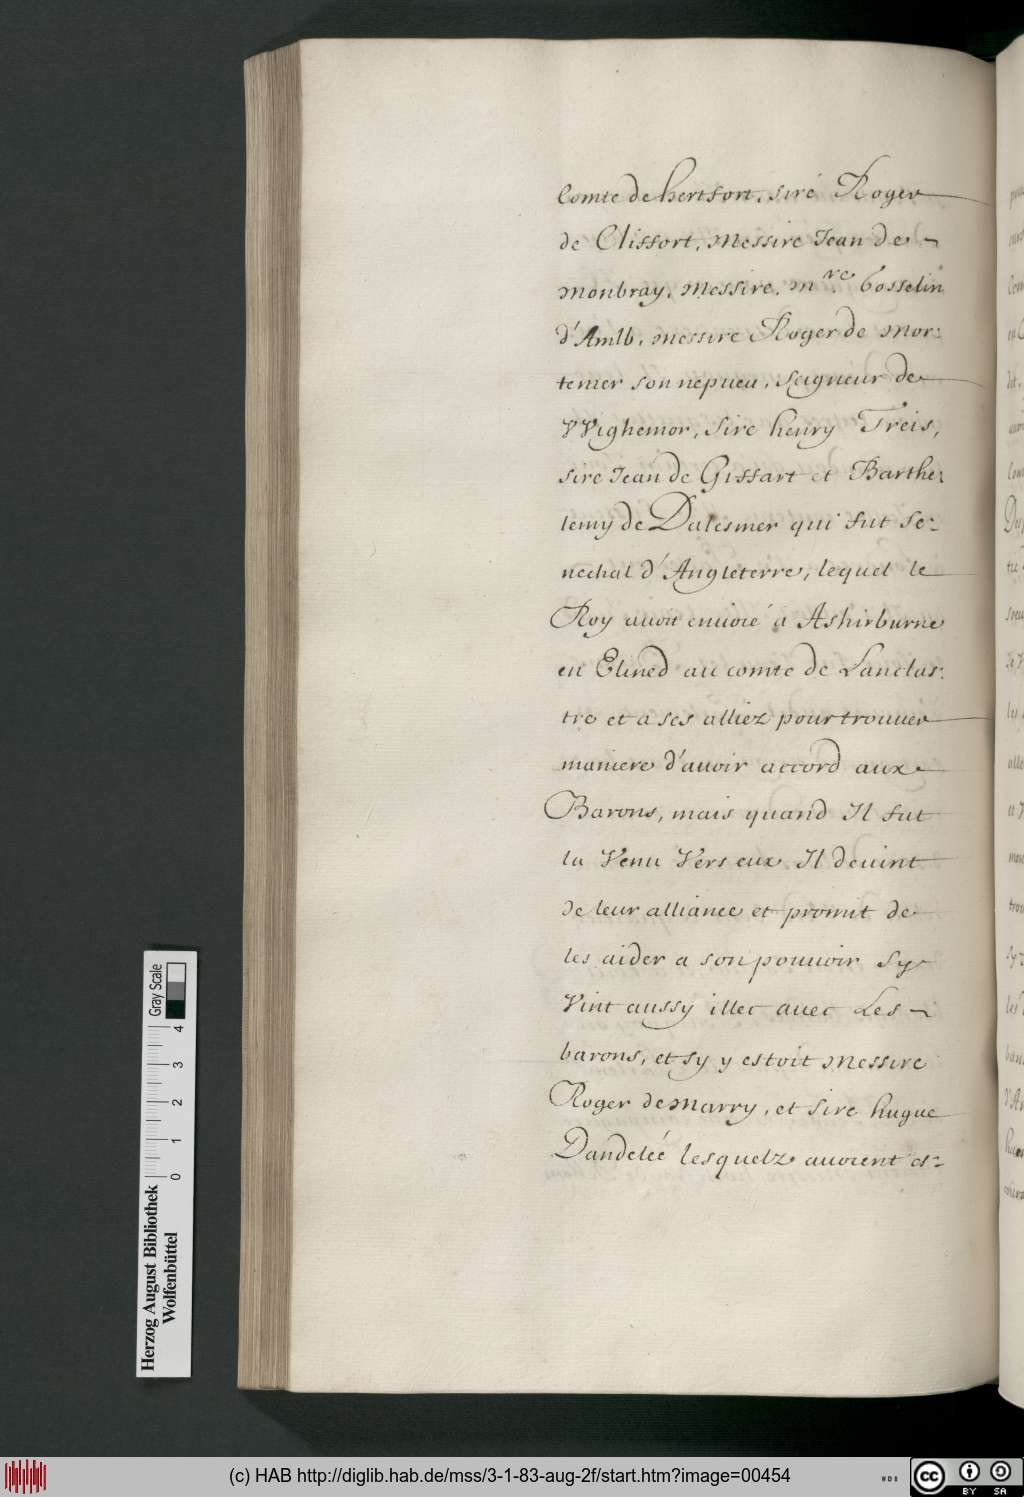 Comte de hertfort, sire Roger
de Clissort, Messire Jean de
monbray, Messire, m.re Gosselin
d'Amlb, messire Roger de mor:
temer son nepueu, Seigneur de
VVighemor, Sire henry Treis,
sire Jean de Gissart et Barthe:
lemy de Dalesmer qui fut Se:
nechal d'Angleterre, lequel le
Roy avoit envoié a Ashirburne
en Elined au comte de Lanclas:
tre et a ses alliez pour trouuer
maniere d'auoir accord aux
Barons, mais quand Il fut
la Venu Vers eux Il deuint
de leur alliance et promit de
les aider a son pouuoir Sy
Vint aussy illec auec Les
barons, et sy y estoit Messire
Roger de Marry, et sire hugue
Dandeléé lesquelz auoient é:
Herzog August Bibliothek
Wolfenbüttel
0 1 2 3 4
Gray Scale
(c) HAB http://diglib.hab.de/mss/3-1-83-aug-2f/start.htm?image=00454
WDB
cc BY SA